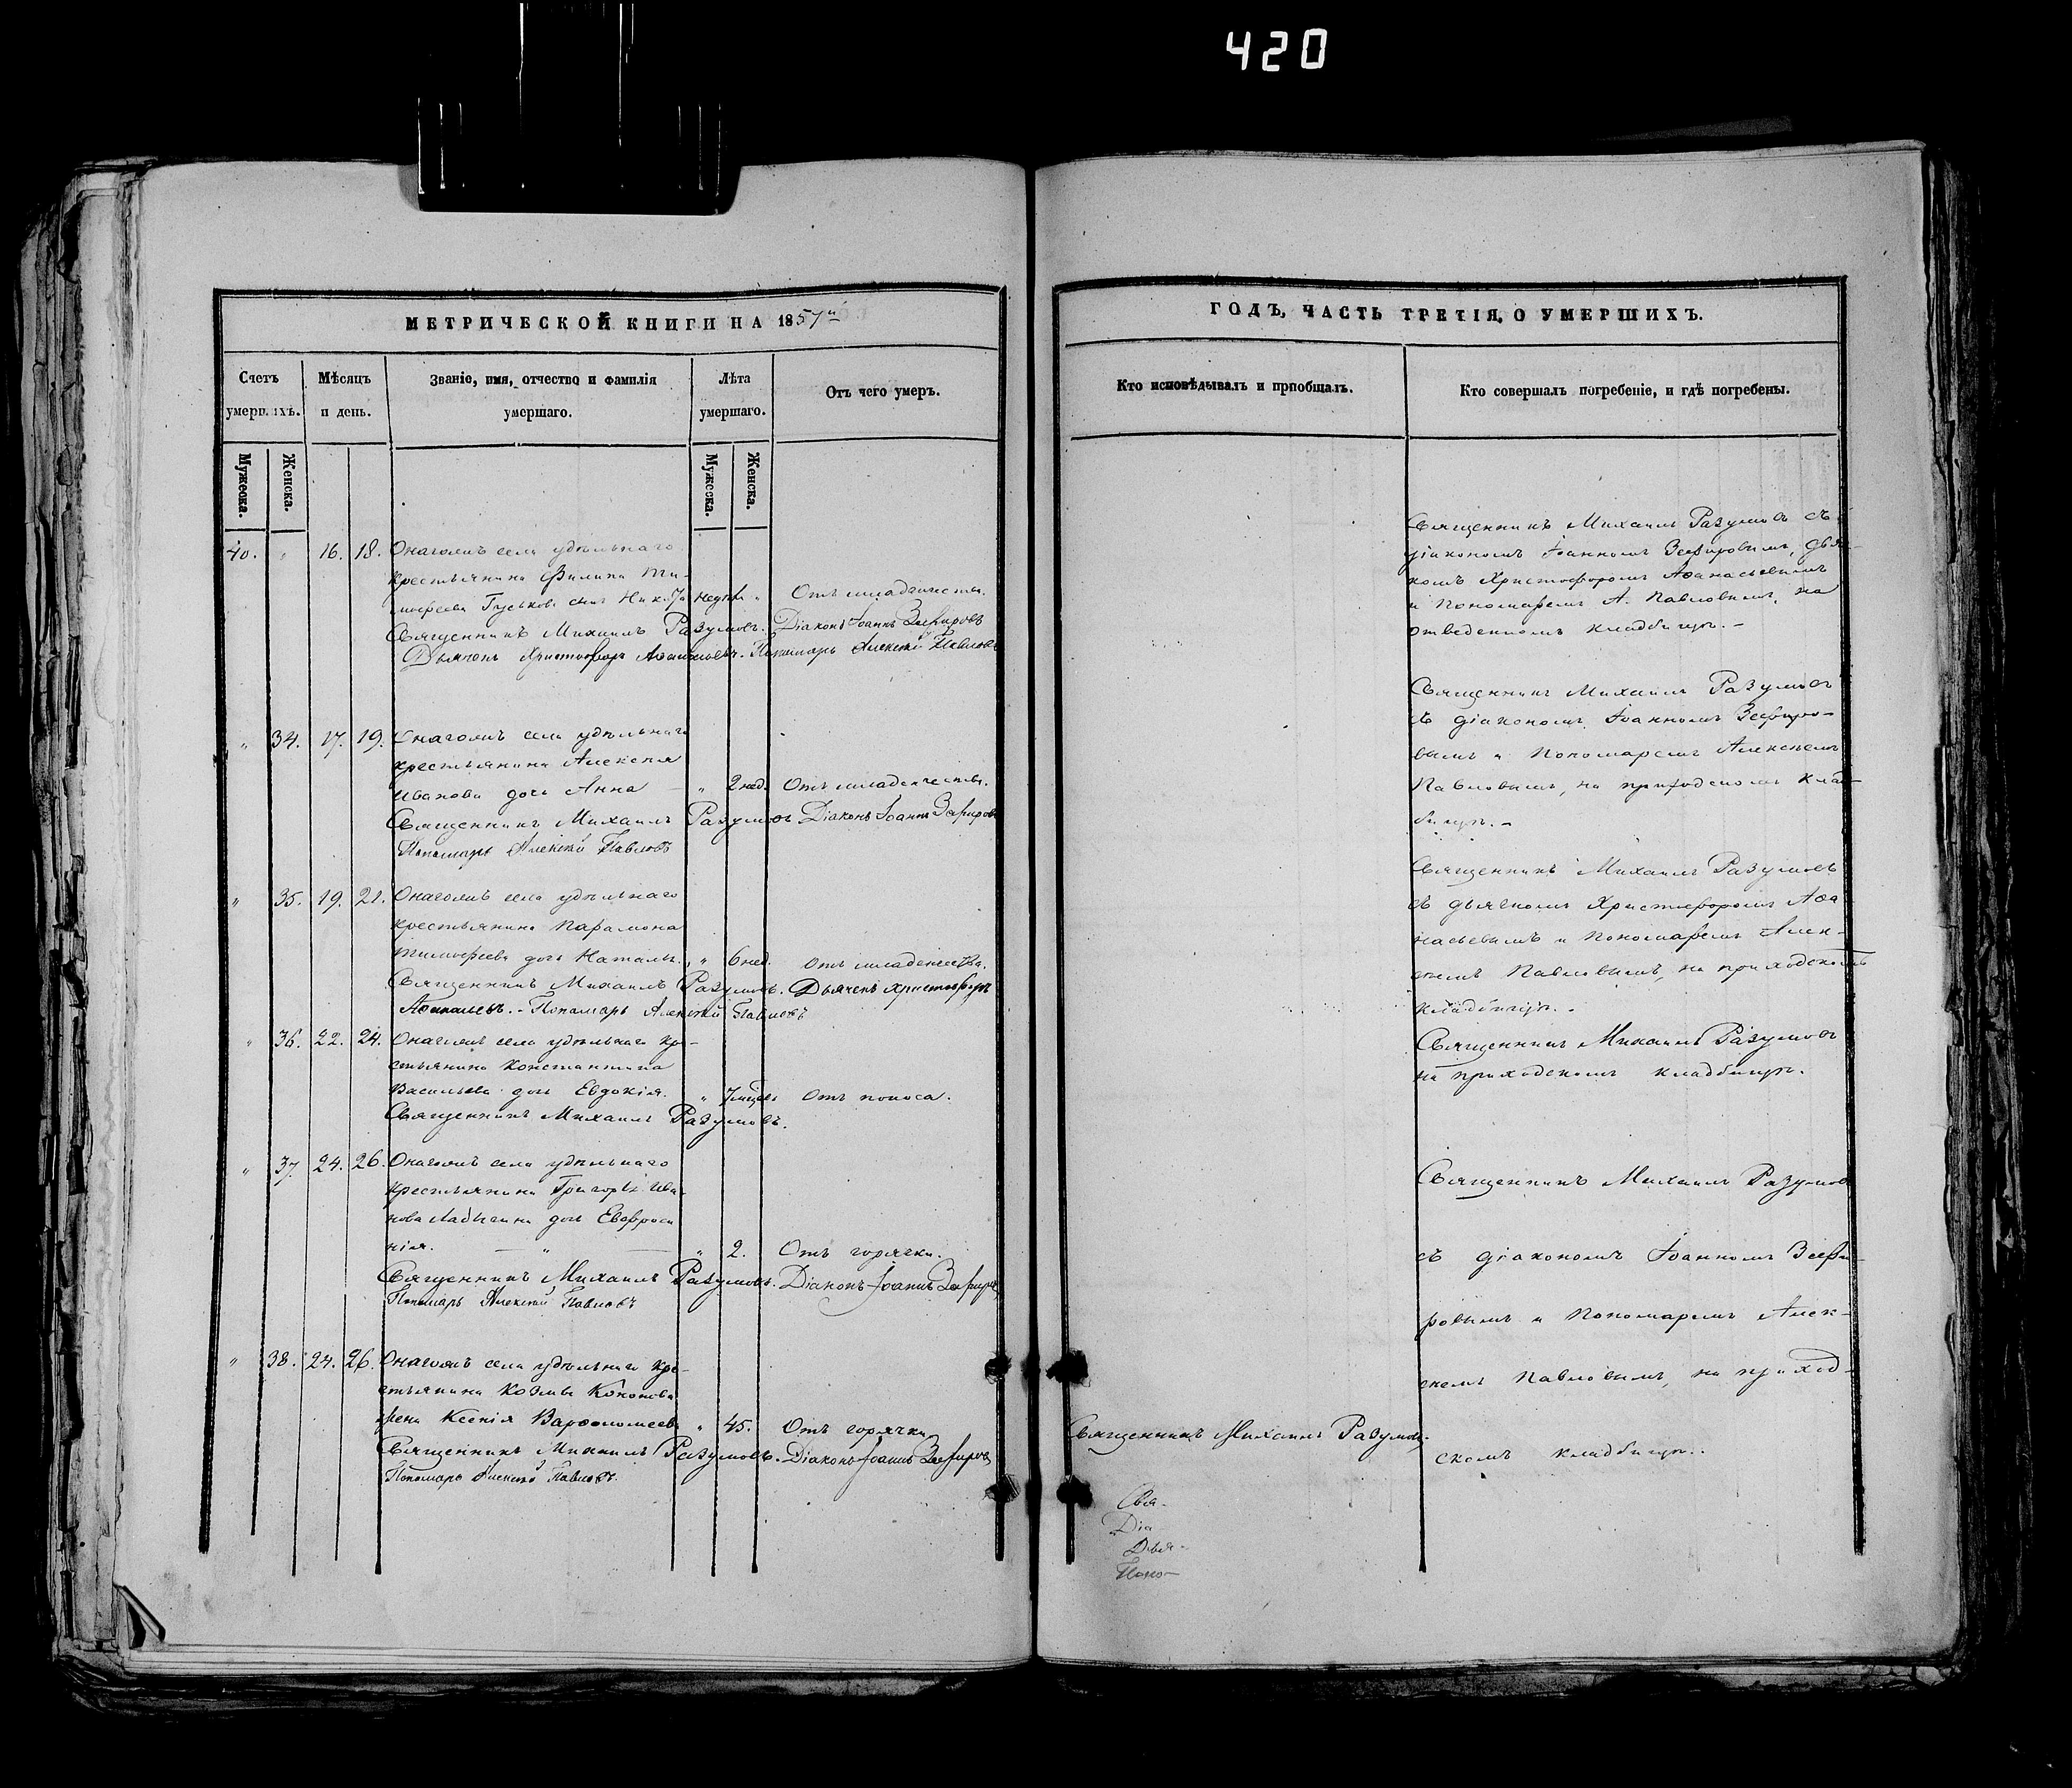 420
МЕТРИЧЕСКОЙ КНИГИ НА 1857й
Счетъ умерших. Мѣсяцъ и день. Званіе, имя, отчество и фамилія умершаго. Лѣта умершаго. Отъ чего умеръ.
Мужеска. Женска. Мужеска. Женска.
40. " 16. 18. Онагомъ села удѣльнаго
крестьянина Филипа Ти-
мофеева Гуськова сынъ 7 недѣл " Отъ младенчества.
Священникъ Михаилъ Разумовъ. Діаконъ Іоаннъ Зефировъ
Дьячекъ Христофоръ Аѳанасьевъ. Пономарь Алексѣй Павловъ
" 34. 17. 19. села удѣльнаго
крестьянина Алексѣя
Иванова дочь Анна " 2 нед. Отъ младенчества.
Священникъ Михаилъ Разумовъ Діаконъ Іоаннъ Зефировъ
Пономарь Алексѣй Павловъ
" 35. 19. 21. села удѣльнаго
крестьянина Парамона
Тимофеева дочь Наталья. " 6 нед. Отъ младенчества.
Священникъ Михаилъ Разумовъ. Дьячекъ Христофоръ
Аѳанасьевъ. - Пономарь Алексѣй Павловъ
" 36. 22. 24. села удѣльнаго кре-
стьянина Константина
Васильева дочь Евдокія. " 7 мѣсяц. Отъ поноса.
Священникъ Михаилъ Разумовъ.
" 37. 24. 26. села удѣльнаго
крестьянина Григорья Ива-
нова дочь Евфроси
нія. — " — " 2. Отъ горячки.
Священникъ Михаилъ Разумовъ. Діаконъ Іоаннъ Зефировъ
Пономарь Алексѣй Павловъ
" 38. 24. 26. села удѣльнаго кре-
стьянина Козмы Кононова
жена Ксенія Варѳоломеева " 45. Отъ горячки
Священникъ Михаилъ Разумовъ. Діаконъ Іоаннъ Зефировъ
Пономарь Алексѣй Павловъ.
ГОДЪ, ЧАСТЬ ТРЕТІЯ, О УМЕРШИХЪ.
Кто исповѣдывалъ и пріобщалъ. Кто совершалъ погребеніе, и гдѣ погребены.
Священникъ Михаилъ Разумовъ съ
діакономъ Іоанномъ Зефировымъ, дьяч-
комъ Христофоромъ Аѳанасьевымъ
и Пономаремъ А. Павловымъ, на
отведенномъ кладбищѣ. -
Священникъ Михаилъ Разумовъ
съ діакономъ Іоанномъ Зефиро-
вымъ и Пономаремъ Алексѣемъ
Павловымъ, на приходскомъ клад-
бищѣ. -
Священникъ Михаилъ Разумовъ
съ дьячкомъ Христофоромъ Аѳа
насьевымъ и Пономаремъ Алек-
сѣемъ Павловымъ, на приходскомъ
кладбищѣ. -
Священникъ Михаилъ Разумовъ
на приходскомъ кладбищѣ.
Священникъ Михаилъ Разумовъ
съ діакономъ Іоанномъ Зефи-
ровымъ и Пономаремъ Алек-
сѣемъ Павловымъ, на приход-
скомъ кладбищѣ.
Священникъ Михаилъ Разумовъ.
Свя-
Діа
Дья-
Поно-